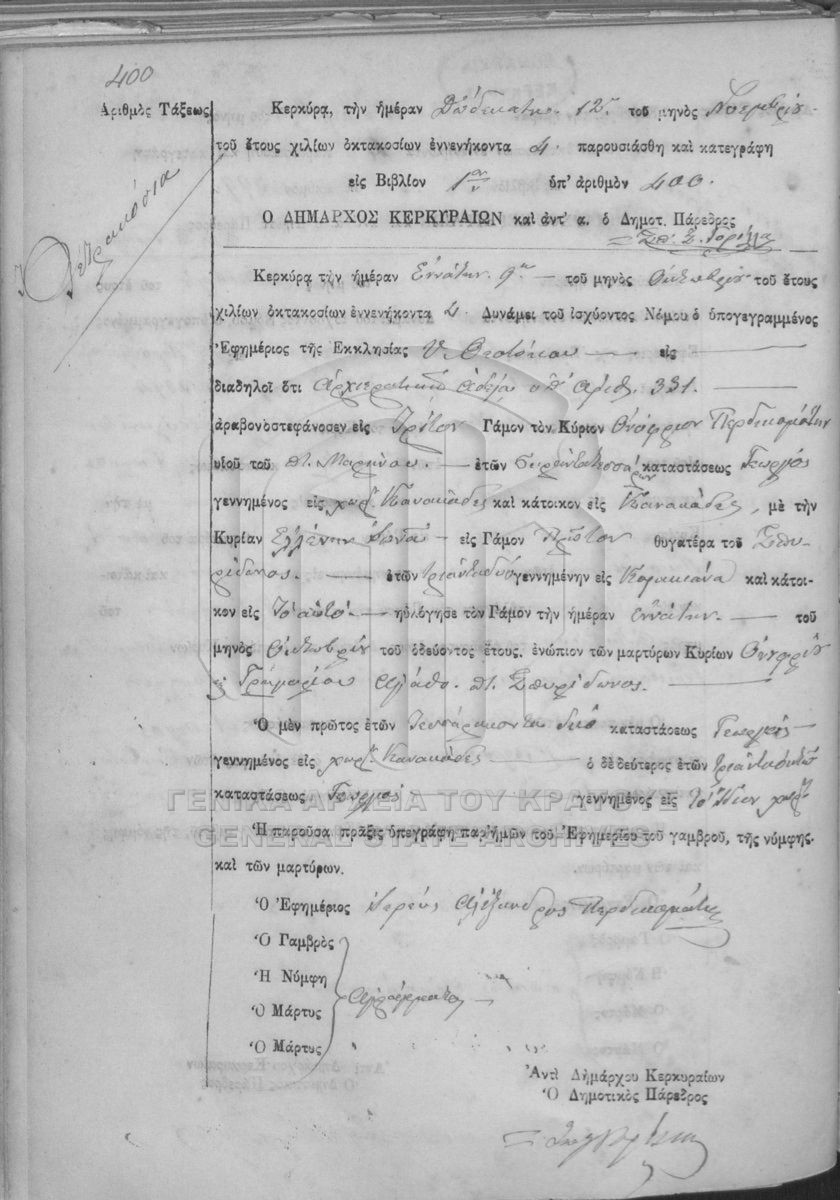 400
Ἀριθμὸς Τάξεως
Τετρακόσια
Κερκύρα, τὴν ἡμέραν Δωδεκάτην 12ην τοῦ μηνὸς Νοεμβρίου
τοῦ ἔτους χιλίων ὀκτακοσίων ἐννενήκοντα 4. παρουσιάσθη καὶ κατεγράφη
εἰς Βιβλίον 1ον ὑπ' ἀριθμὸν 400.
Ο ΔΗΜΑΡΧΟΣ ΚΕΡΚΥΡΑΙΩΝ καὶ ἀντ' α. ὁ Δημοτ. Πάρεδρος
Κερκύρα τὴν ἡμέραν Ἐννάτην 9ην τοῦ μηνὸς Ὀκτωβρίου τοῦ ἔτους
χιλίων ὀκτακοσίων ἐννενήκοντα 4. Δυνάμει τοῦ ἰσχύοντος Νόμου ὁ ὑπογεγραμμένος
Ἐφημέριος τῆς Ἐκκλησίας Υ. Θεοτόκου εἰς
διαδηλοῖ ὅτι Ἀρχιερατικῇ ἀδείᾳ ὑπ' ἀριθ. 331.
ἀραβον'οστεφάνοσεν εἰς Τρίτον Γάμον τὸν Κύριον Ὀνούφριον Περδικομάτην
υἱοῦ τοῦ ποτ. Μαρίνου. ἐτῶν σαράντατεσσάρων καταστάσεως Γεωργὸς
γεννημένος εἰς χωρ. Κανακάδες καὶ κάτοικον εἰς Κανακάδες, μὲ τὴν
Κυρίαν Ἑλλένην εἰς Γάμον Πρῶτον θυγατέρα τοῦ Σπυ-
ρίδονος. ἐτῶν τριανταδύο γεννημένην εἰς Κορακιάνα καὶ κάτοι-
κον εἰς Τὸ αὐτό. ηὐλόγησε τὸν Γάμον τὴν ἡμέραν ἐννάτην. τοῦ
μηνὸς Ὀκτωβρίου τοῦ ὁδεύοντος ἔτους, ἐνώπιον τῶν μαρτύρων Κυρίων Ὀνουφρίου
Ἀγάθο. ποτ. Σπυρίδωνος.
Ὁ μὲν πρῶτος ἐτῶν τεσσαράκοντα δύο καταστάσεως Γεωργὸς
γεννημένος εἰς χωρ. Κανακάδες ὁ δὲ δεύτερος ἐτῶν τριάντα ὀκτὼ
καταστάσεως Γεωργὸς γεννημένος εἰς τὸ ἴδιον χωρ.
ΓΕΝΙΚΑ ΑΡΧΕΙΑ ΤΟΥ ΚΡΑΤΟΥΣ
GENERAL STATE ARCHIVES
Ἡ παροῦσα πρᾶξις ὑπεγράφη παρ'ἡμῶν τοῦ Ἐφημερίου τοῦ γαμβροῦ, τῆς νύμφης
καὶ τῶν μαρτύρων.
Ὁ Ἐφημέριος Ἱερεὺς Ἀλέξανδρος Περδικομάτης
Ὁ Γαμβρὸς
Ἡ Νύμφη
Ὁ Μάρτυς Ἀγράμματοι
Ὁ Μάρτυς
Ἀντὶ Δημάρχου Κερκυραίων
Ὁ Δημοτικὸς Πάρεδρος